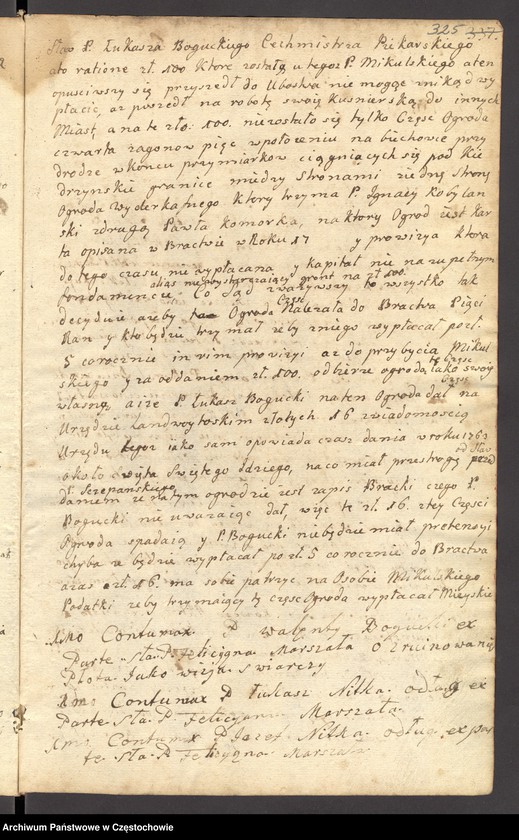 325 337.
Sław P. Łukasza Boguckiego Cechmistrza Piekarskiego
ato ratione zł. 100 ktore zostały u tegoz P. Mikulskiego aten
opusciwszy się przyszedł do Ubostwa nie mogąc niską d wy
płacic, az poszedł na robotę swoią Kusnierską do innych
Miast, a na te zło: 100. nie zostało się tylko Częsc Ogroda
czwarta zagonow pięc w położeniu na biechowce przy
drodze w koncu przymiarkow ciągnących się pod Kie
drzynskie granice między stronami z iedną Stroną
Ogroda Wyderkalnego ktory trzyma P. Ignacy Kobylan
ski z drugą Pawła Komorka, na ktory Ogrod iest kar
ta opisana w Bractwie w Roku 17 y prowizya ktora
do tego czasu nie wypłacana y kapitał nie na zupełnym
alias niewystarczający gront na zł 100.
fondamencie Co Sąd zwazywszy to wszystko tak
Częsc
decyduie azeby Ogroda Nalezała do Bractwa Pięci
Ran y kto będzie trzymał zeby z niego wypłacał po zł.
5 corocznie in vim prowizyi az do przybycia Mikul
tę Częsc
skiego y za oddaniem zł. 100. odbierze ogroda iako swoią
Częsc
własną, a iże P. Łukasz Bogucki na ten Ogroda dał na
Urzędzie Landwoytoskim złotych 16 z wiadomoscią
Urzędu tegoz iako sam opowiada czas dania w roku 1762
od Sław
około swięta Swiętego Idziego, na co miał przestrogę przed
P. Szczepanskiego
daniem ze na tym ogrodzie iest zapis Bracki czego P.
Bogucki nie uwazaiąc dał, więc te zł. 16. z tey Częsci
Ogroda spadaią y P. Bogucki nie będzie miał pretensyi
chyba ze będzie wypłacał po zł. 5 corocznie do Bractwa
a zas o zł. 16. ma sobie patrzyc na Osobie Mikulskiego
Podatki zeby trzymaiący tę częsc Ogroda wypłacał Mieyskie
Imo Contumax P Walenty Bogucki ex
Parte Sła. P. Felicyana Marszała o zruinowanie
Płota Jako wizya swiarczy
Imo Contumax P Łukasz Nitka. odług ex
Parte Sła. P. Felicyana Marszała.
Imo Contumax P Jozef Nitka odług ex par
te Sła. P Felicyana Marszała
Archiwum Państwowe w Częstochowie